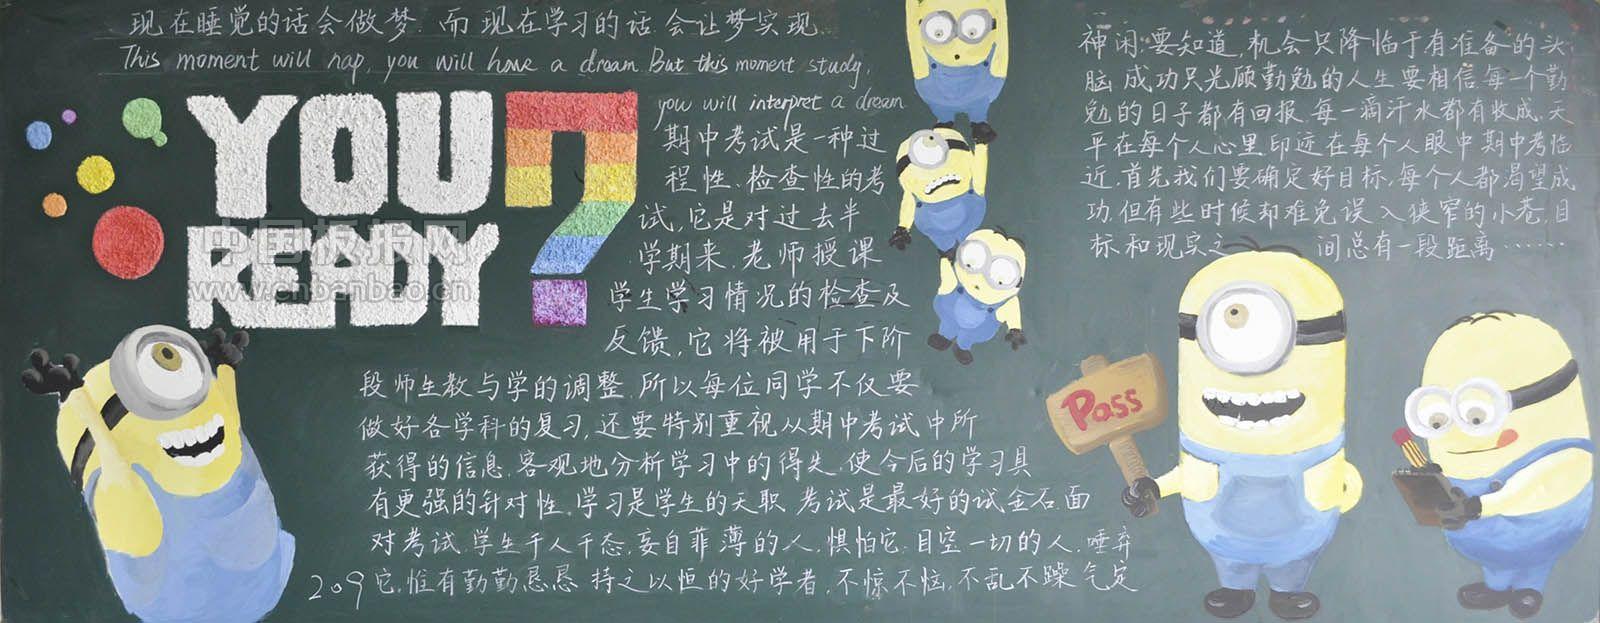 现在睡觉的话会做梦.而现在学习的话.会让梦实现
This moment will nap, you will have a dream. But this moment study,
you will interpret a dream
YOU
READY?
中国板报网
www.cnbanbao.cn
期中考试是一种过
程性、检查性的考
试,它是对过去半
学期来.老师授课
学生学习情况的检查及
反馈,它将被用于下阶
段师生教与学的调整.所以每位同学不仅要
做好各学科的复习,还要特别重视从期中考试中所
获得的信息.客观地分析学习中的得失.使今后的学习具
有更强的针对性.学习是学生的天职.考试是最好的试金石.面
对考试.学生千人千态,妄自菲薄的人.惧怕它.目空一切的人.唾弃
它.惟有勤勤恳恳 持之以恒的好学者,不惊不恼,不乱不躁 气定
209
神闲.要知道,机会只降临于有准备的头
脑.成功只光顾勤勉的人生要相信每一个勤
勉的日子都有回报.每一滴汗水都有收成.天
平在每个人心里.印迹在每个人眼中期中考临
近.首先我们要确定好目标,每个人都渴望成
功.但有些时候却难免误入狭窄的小巷.目
标和现实之间总有一段距离……
Pass